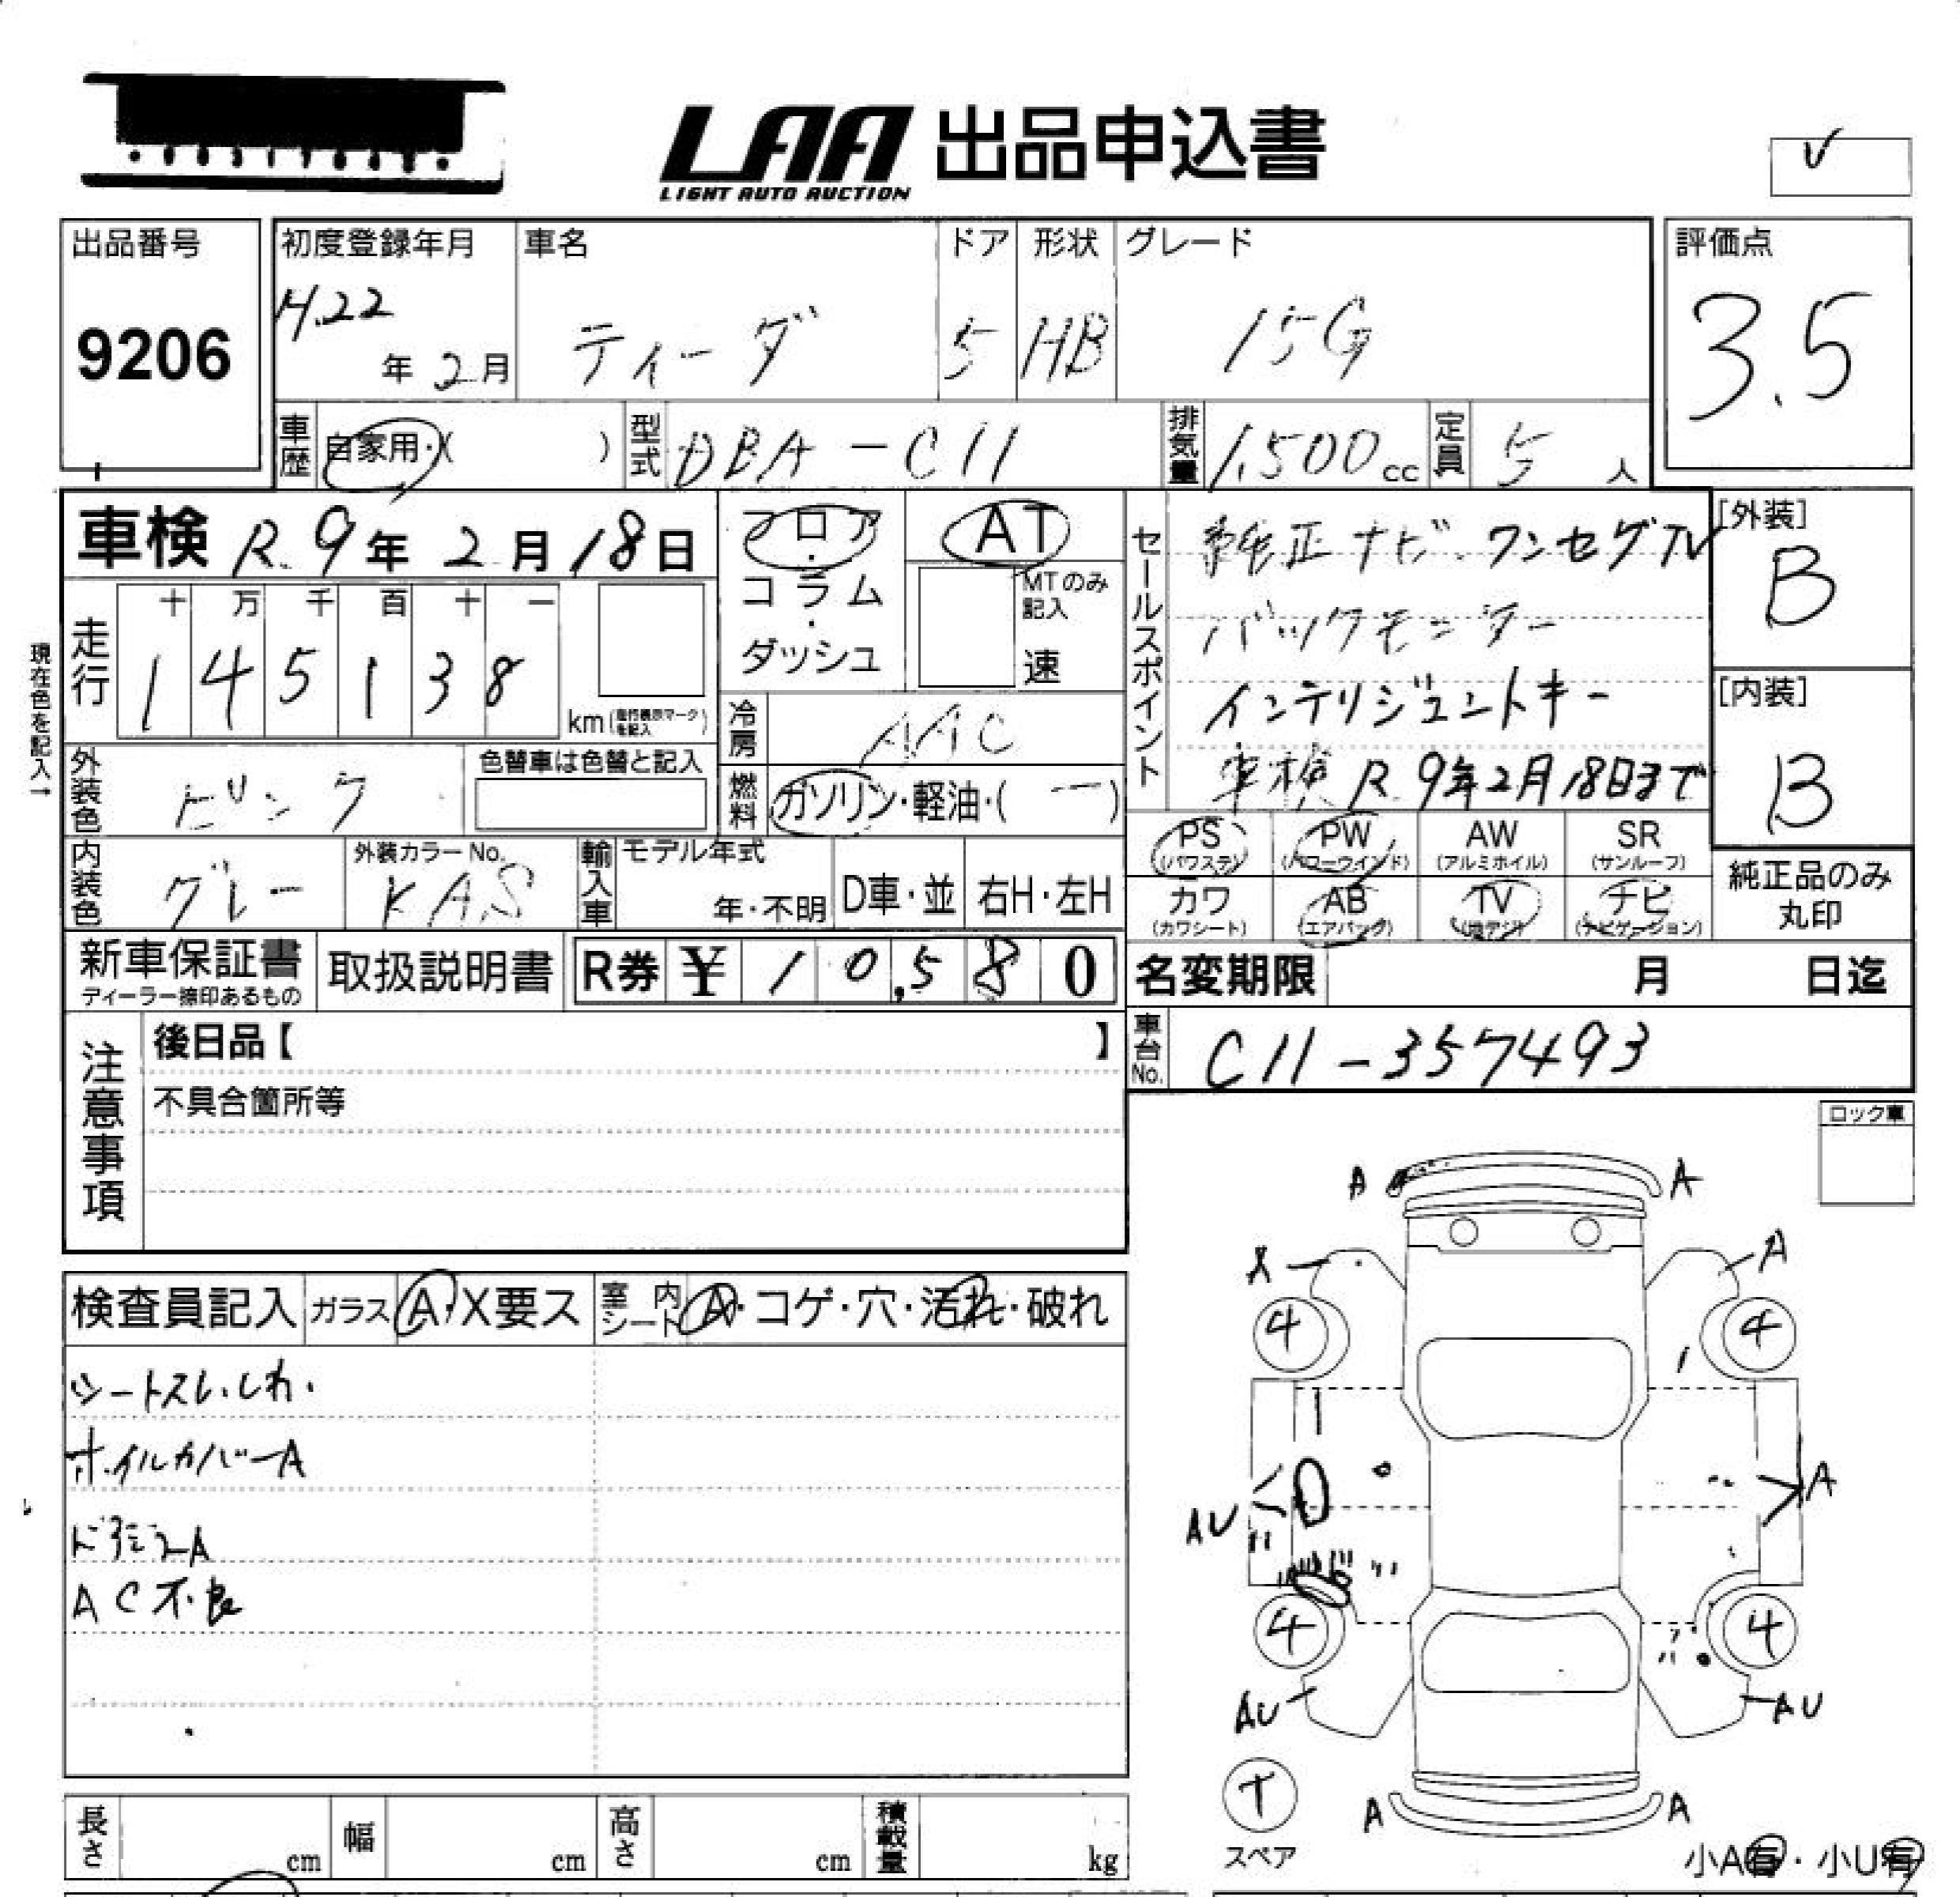 LAA 出品申込書
LIGHT AUTO AUCTION
出品番号
9206
初度登録年月
H.22
年 2月
車名
ティーダ
ドア
5
形状
HB
グレード
15G
評価点
3.5
車歴 自家用・( )
型式 DBA-C11
排気量 1,500cc
定員 5人
車検 R.9年2月18日
フロア・
コラム・
ダッシュ
AT
MTのみ記入
速
セールスポイント
純正ナビ ワンセグTV
バックモニター
インテリジェントキー
車検 R.9年2月18日まで
[外装]
B
[内装]
B
現在色を記入→
走行
十 万 千 百 十 一
1 4 5 1 3 8
km(走行表示マークを記入)
冷房 AAC
燃料 ガソリン・軽油・( ー )
外装色 ピンク
色替車は色替と記入
内装色 グレー
外装カラーNo.
KAS
輸入車 モデル年式
年・不明
D車・並
右H・左H
PS (パワステ)
PW (パワーウインド)
AW (アルミホイル)
SR (サンルーフ)
カワ (カワシート)
AB (エアバッグ)
TV (地デジ)
ナビ (ナビゲーション)
純正品のみ
丸印
新車保証書
ディーラー捺印あるもの
取扱説明書
R券 ¥ 10,580
名変期限 月 日迄
車台No. C11-357493
注意事項
後日品【 】
不具合箇所等
ロック車
検査員記入
ガラス A・X要ス
室内シート A・コゲ・穴・汚れ・破れ
シートスレ、しわ.
ホイルカバーA
AC不良
A A
X A
4 4
AU A
4 4
AU AU
T
スペア
A A
小A有・小U有
長さ cm
幅 cm
高さ cm
積載量 kg